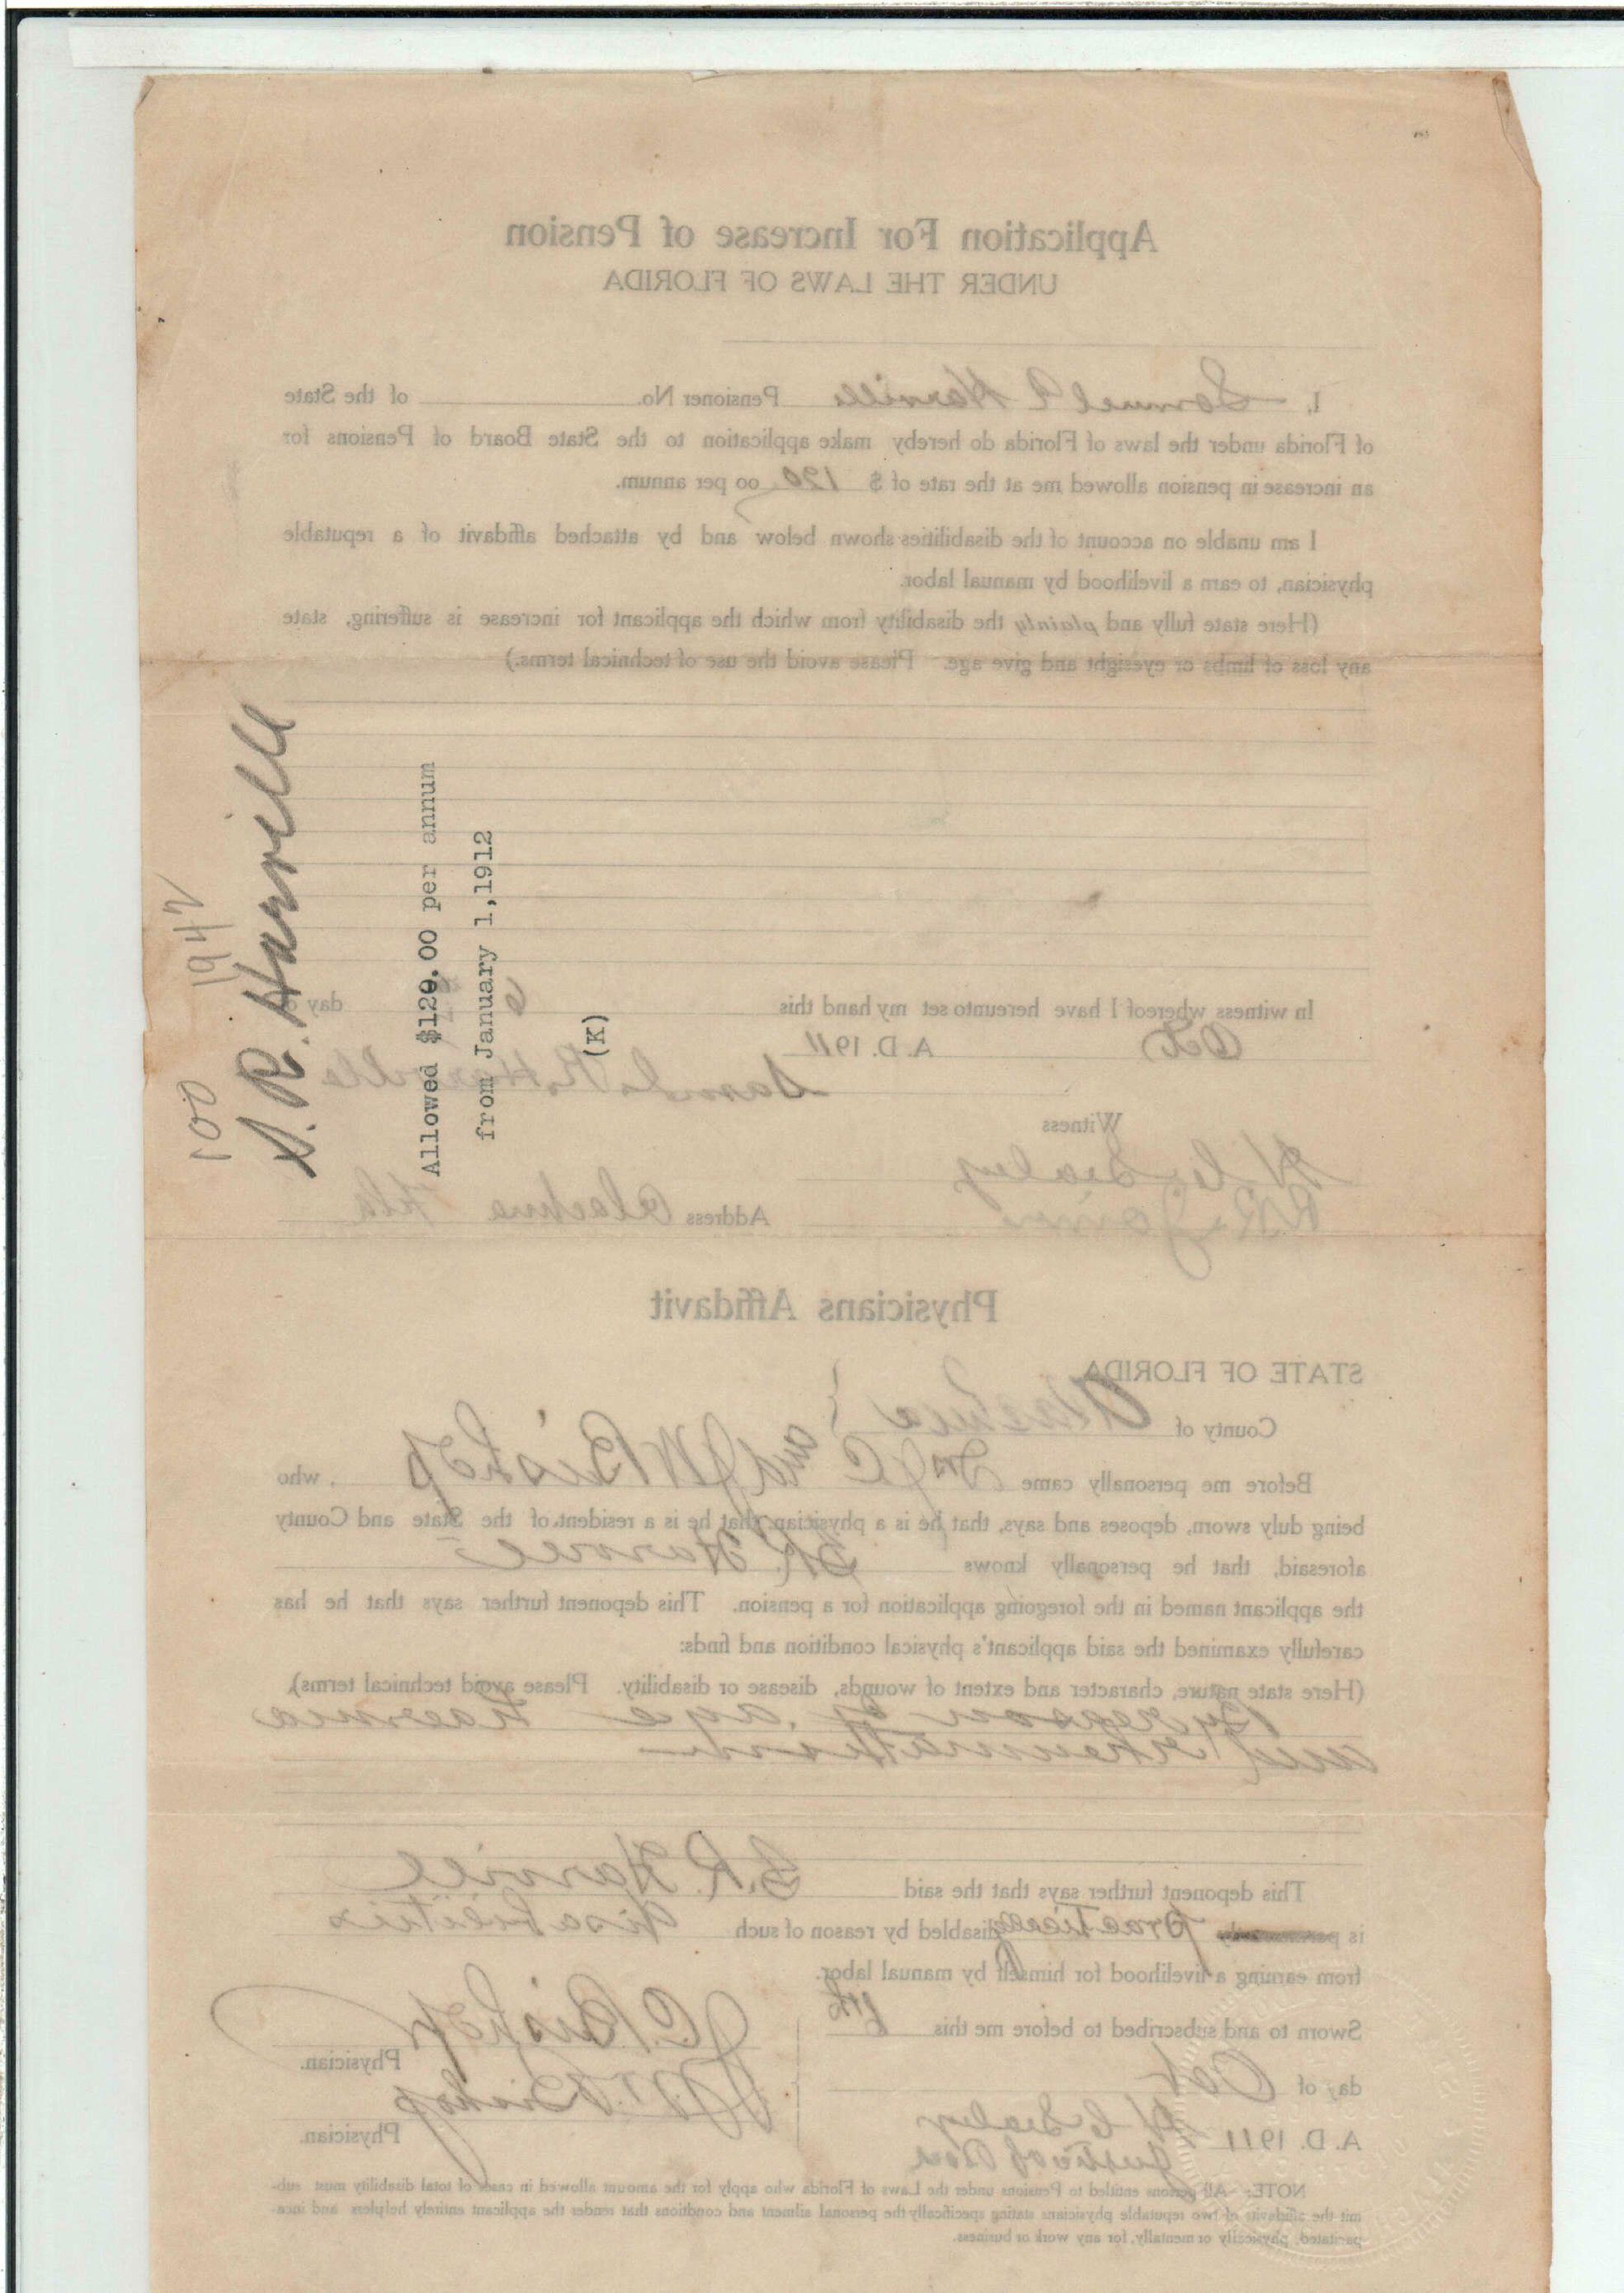 100 1942
S. R. Harvill
Allowed $120.00 per annum
from January 1,1912
(K)
Application For Increase of Pension
UNDER THE LAWS OF FLORIDA
I, Samuel R Harvill Pensioner No. of the State
of Florida under the laws of Florida do hereby make application to the State Board of Pensions for
an increase in pension allowed me at the rate of $ 120 00 per annum.
I am unable on account of the disabilities shown below and by attached affidavit of a reputable
physician, to earn a livelihood by manual labor.
(Here state fully and plainly the disability from which the applicant for increase is suffering, state
any loss of limbs or eyesight and give age. Please avoid the use of technical terms.)
In witness whereof I have hereunto set my hand this 6 day of
Oct A. D. 1911
Saml. R. Harville
Witness
Address Alachua Fla
Physicians Affidavit
STATE OF FLORIDA
County of Alachua
Before me personally came Drs J C and J W Bishop , who
being duly sworn, deposes and says, that he is a physician; that he is a resident of the State and County
aforesaid, that he personally knows S.R. Harvill
the applicant named in the foregoing application for a pension. This deponent further says that he has
carefully examined the said applicant's physical condition and finds:
(Here state nature, character and extent of wounds, disease or disability. Please avoid technical terms).
By reason of age
and rheumatism
This deponent further says that the said S.R. Harvill
is practically disabled by reason of such disabilities
from earning a livelihood for himself by manual labor.
Sworn to and subscribed to before me this 6th
day of Oct
A. D. 1911
J C Bishop
Physician.
J W. Bishop
Physician.
NOTE:—All persons entitled to Pensions under the Laws of Florida who apply for the amount allowed in cases of total disability must sub-
mit the affidavits of two reputable physicians stating specifically the personal ailment and conditions that render the applicant entirely helpless and inca-
pacitated, physically or mentally, for any work or business.